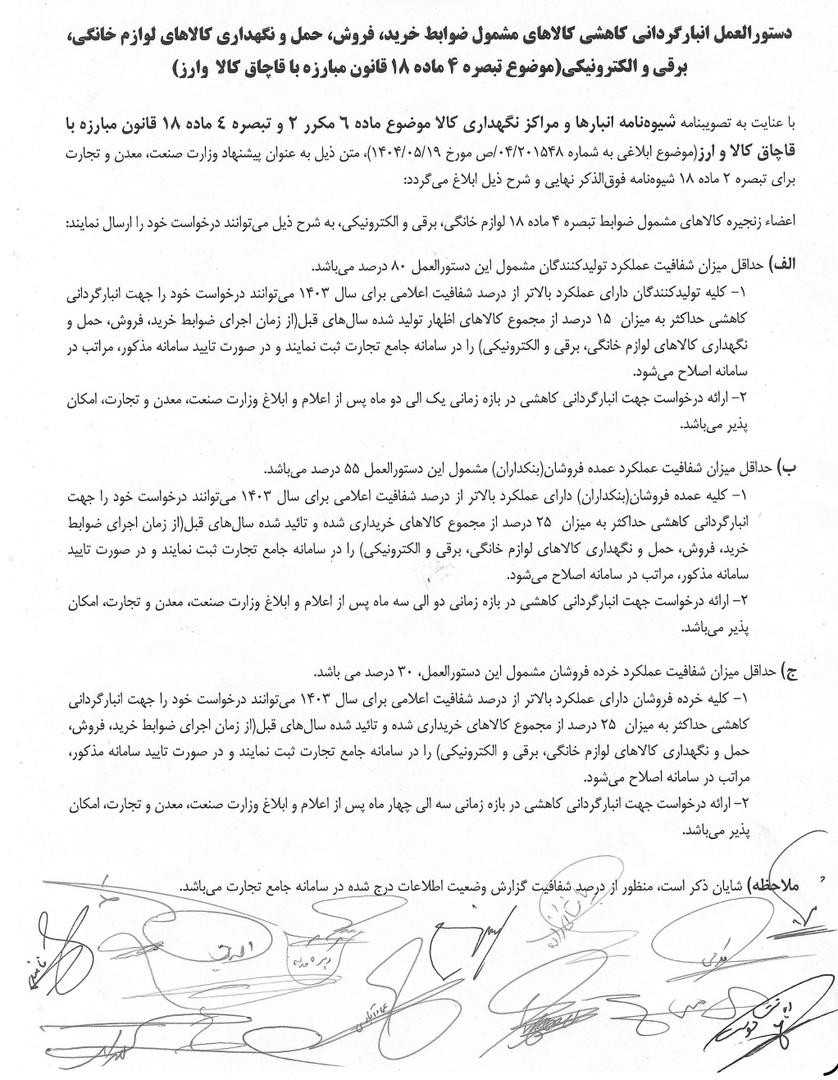 دستورالعمل انبارگردانی کاهشی کالاهای مشمول ضوابط خرید، فروش، حمل و نگهداری کالاهای لوازم خانگی،
برقی و الکترونیکی(موضوع تبصره ۴ ماده ۱۸ قانون مبارزه با قاچاق کالا وارز)
با عنایت به تصویبنامه شیوه‌نامه انبارها و مراکز نگهداری کالا موضوع ماده ۶ مکرر ۲ و تبصره ٤ ماده ۱۸ قانون مبارزه با
قاچاق کالا و ارز(موضوع ابلاغی به شماره ۰۴/۲۰۱۵۴۸/ص مورخ ۱۴۰۴/۰۵/۱۹)، متن ذیل به عنوان پیشنهاد وزارت صنعت، معدن و تجارت
برای تبصره ۲ ماده ۱۸ شیوه‌نامه فوق‌الذکر نهایی و شرح ذیل ابلاغ می‌گردد:
اعضاء زنجیره کالاهای مشمول ضوابط تبصره ۴ ماده ۱۸ لوازم خانگی، برقی و الکترونیکی، به شرح ذیل می‌توانند درخواست خود را ارسال نمایند:
الف) حداقل میزان شفافیت عملکرد تولیدکنندگان مشمول این دستورالعمل ۸۰ درصد می‌باشد.
۱- کلیه تولیدکنندگان دارای عملکرد بالاتر از درصد شفافیت اعلامی برای سال ۱۴۰۳ می‌توانند درخواست خود را جهت انبارگردانی
کاهشی حداکثر به میزان ۱۵ درصد از مجموع کالاهای اظهار تولید شده سال‌های قبل(از زمان اجرای ضوابط خرید، فروش، حمل و
نگهداری کالاهای لوازم خانگی، برقی و الکترونیکی) را در سامانه جامع تجارت ثبت نمایند و در صورت تایید سامانه مذکور، مراتب در
سامانه اصلاح می‌شود.
۲- ارائه درخواست جهت انبارگردانی کاهشی در بازه زمانی یک الی دو ماه پس از اعلام و ابلاغ وزارت صنعت، معدن و تجارت، امکان
پذیر می‌باشد.
ب) حداقل میزان شفافیت عملکرد عمده فروشان(بنکداران) مشمول این دستورالعمل ۵۵ درصد می‌باشد.
۱- کلیه عمده فروشان(بنکداران) دارای عملکرد بالاتر از درصد شفافیت اعلامی برای سال ۱۴۰۳ می‌توانند درخواست خود را جهت
انبارگردانی کاهشی حداکثر به میزان ۲۵ درصد از مجموع کالاهای خریداری شده و تائید شده سال‌های قبل(از زمان اجرای ضوابط
خرید، فروش، حمل و نگهداری کالاهای لوازم خانگی، برقی و الکترونیکی) را در سامانه جامع تجارت ثبت نمایند و در صورت تایید
سامانه مذکور، مراتب در سامانه اصلاح می‌شود.
۲- ارائه درخواست جهت انبارگردانی کاهشی در بازه زمانی دو الی سه ماه پس از اعلام و ابلاغ وزارت صنعت، معدن و تجارت، امکان
پذیر می‌باشد.
ج) حداقل میزان شفافیت عملکرد خرده فروشان مشمول این دستورالعمل، ۳۰ درصد می باشد.
۱- کلیه خرده فروشان دارای عملکرد بالاتر از درصد شفافیت اعلامی برای سال ۱۴۰۳ می‌توانند درخواست خود را جهت انبارگردانی
کاهشی حداکثر به میزان ۲۵ درصد از مجموع کالاهای خریداری شده و تائید شده سال‌های قبل(از زمان اجرای ضوابط خرید، فروش،
حمل و نگهداری کالاهای لوازم خانگی، برقی و الکترونیکی) را در سامانه جامع تجارت ثبت نمایند و در صورت تایید سامانه مذکور،
مراتب در سامانه اصلاح می‌شود.
۲- ارائه درخواست جهت انبارگردانی کاهشی در بازه زمانی سه الی چهار ماه پس از اعلام و ابلاغ وزارت صنعت، معدن و تجارت، امکان
پذیر می‌باشد.
ملاحظه) شایان ذکر است، منظور از درصد شفافیت گزارش وضعیت اطلاعات درج شده در سامانه جامع تجارت می‌باشد.